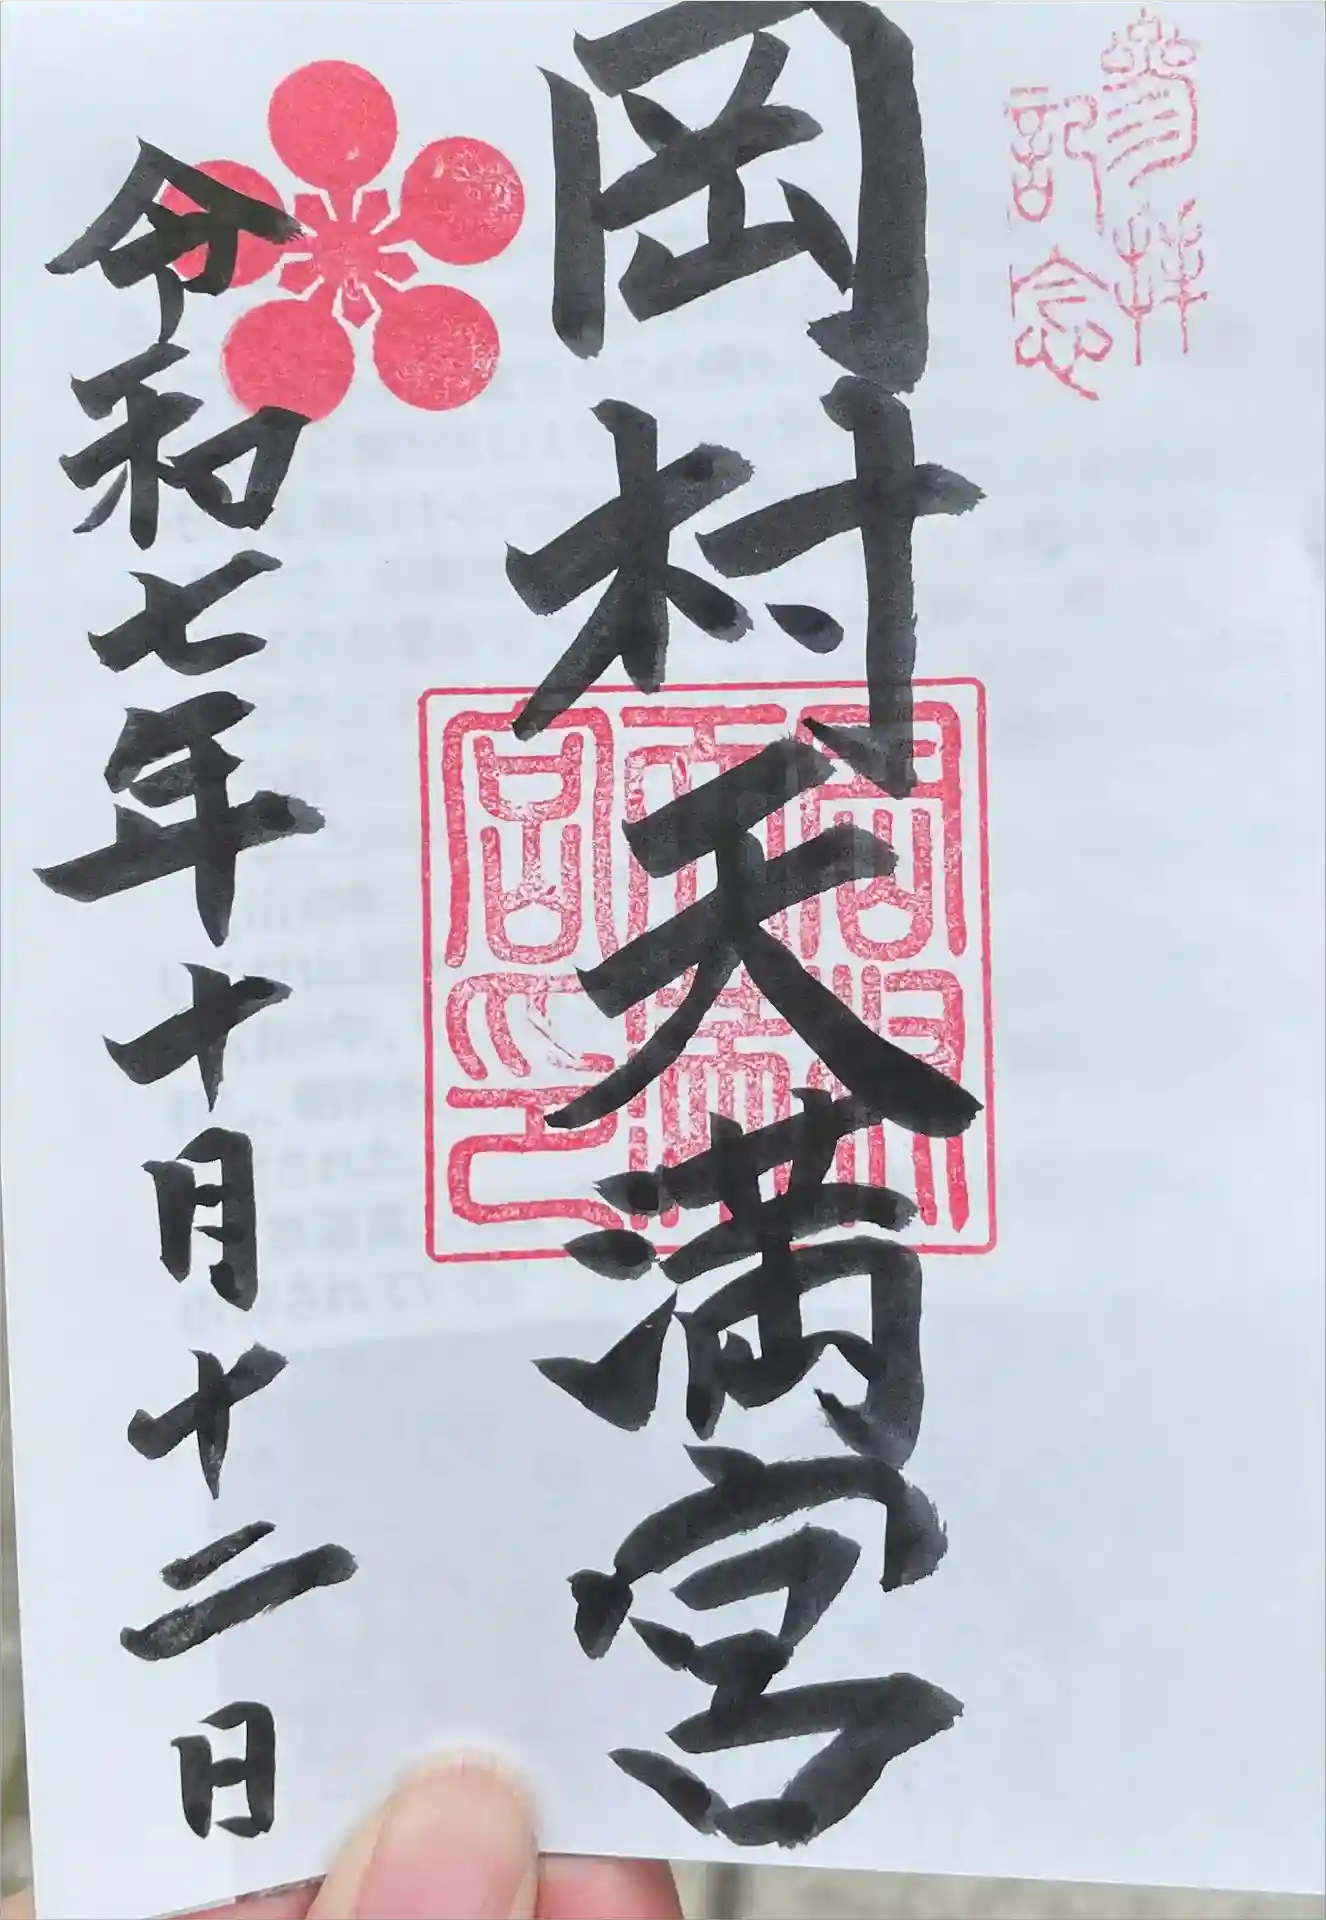 参拝
記念
岡村天満宮
岡村天満宮之印
令和七年十月十二日